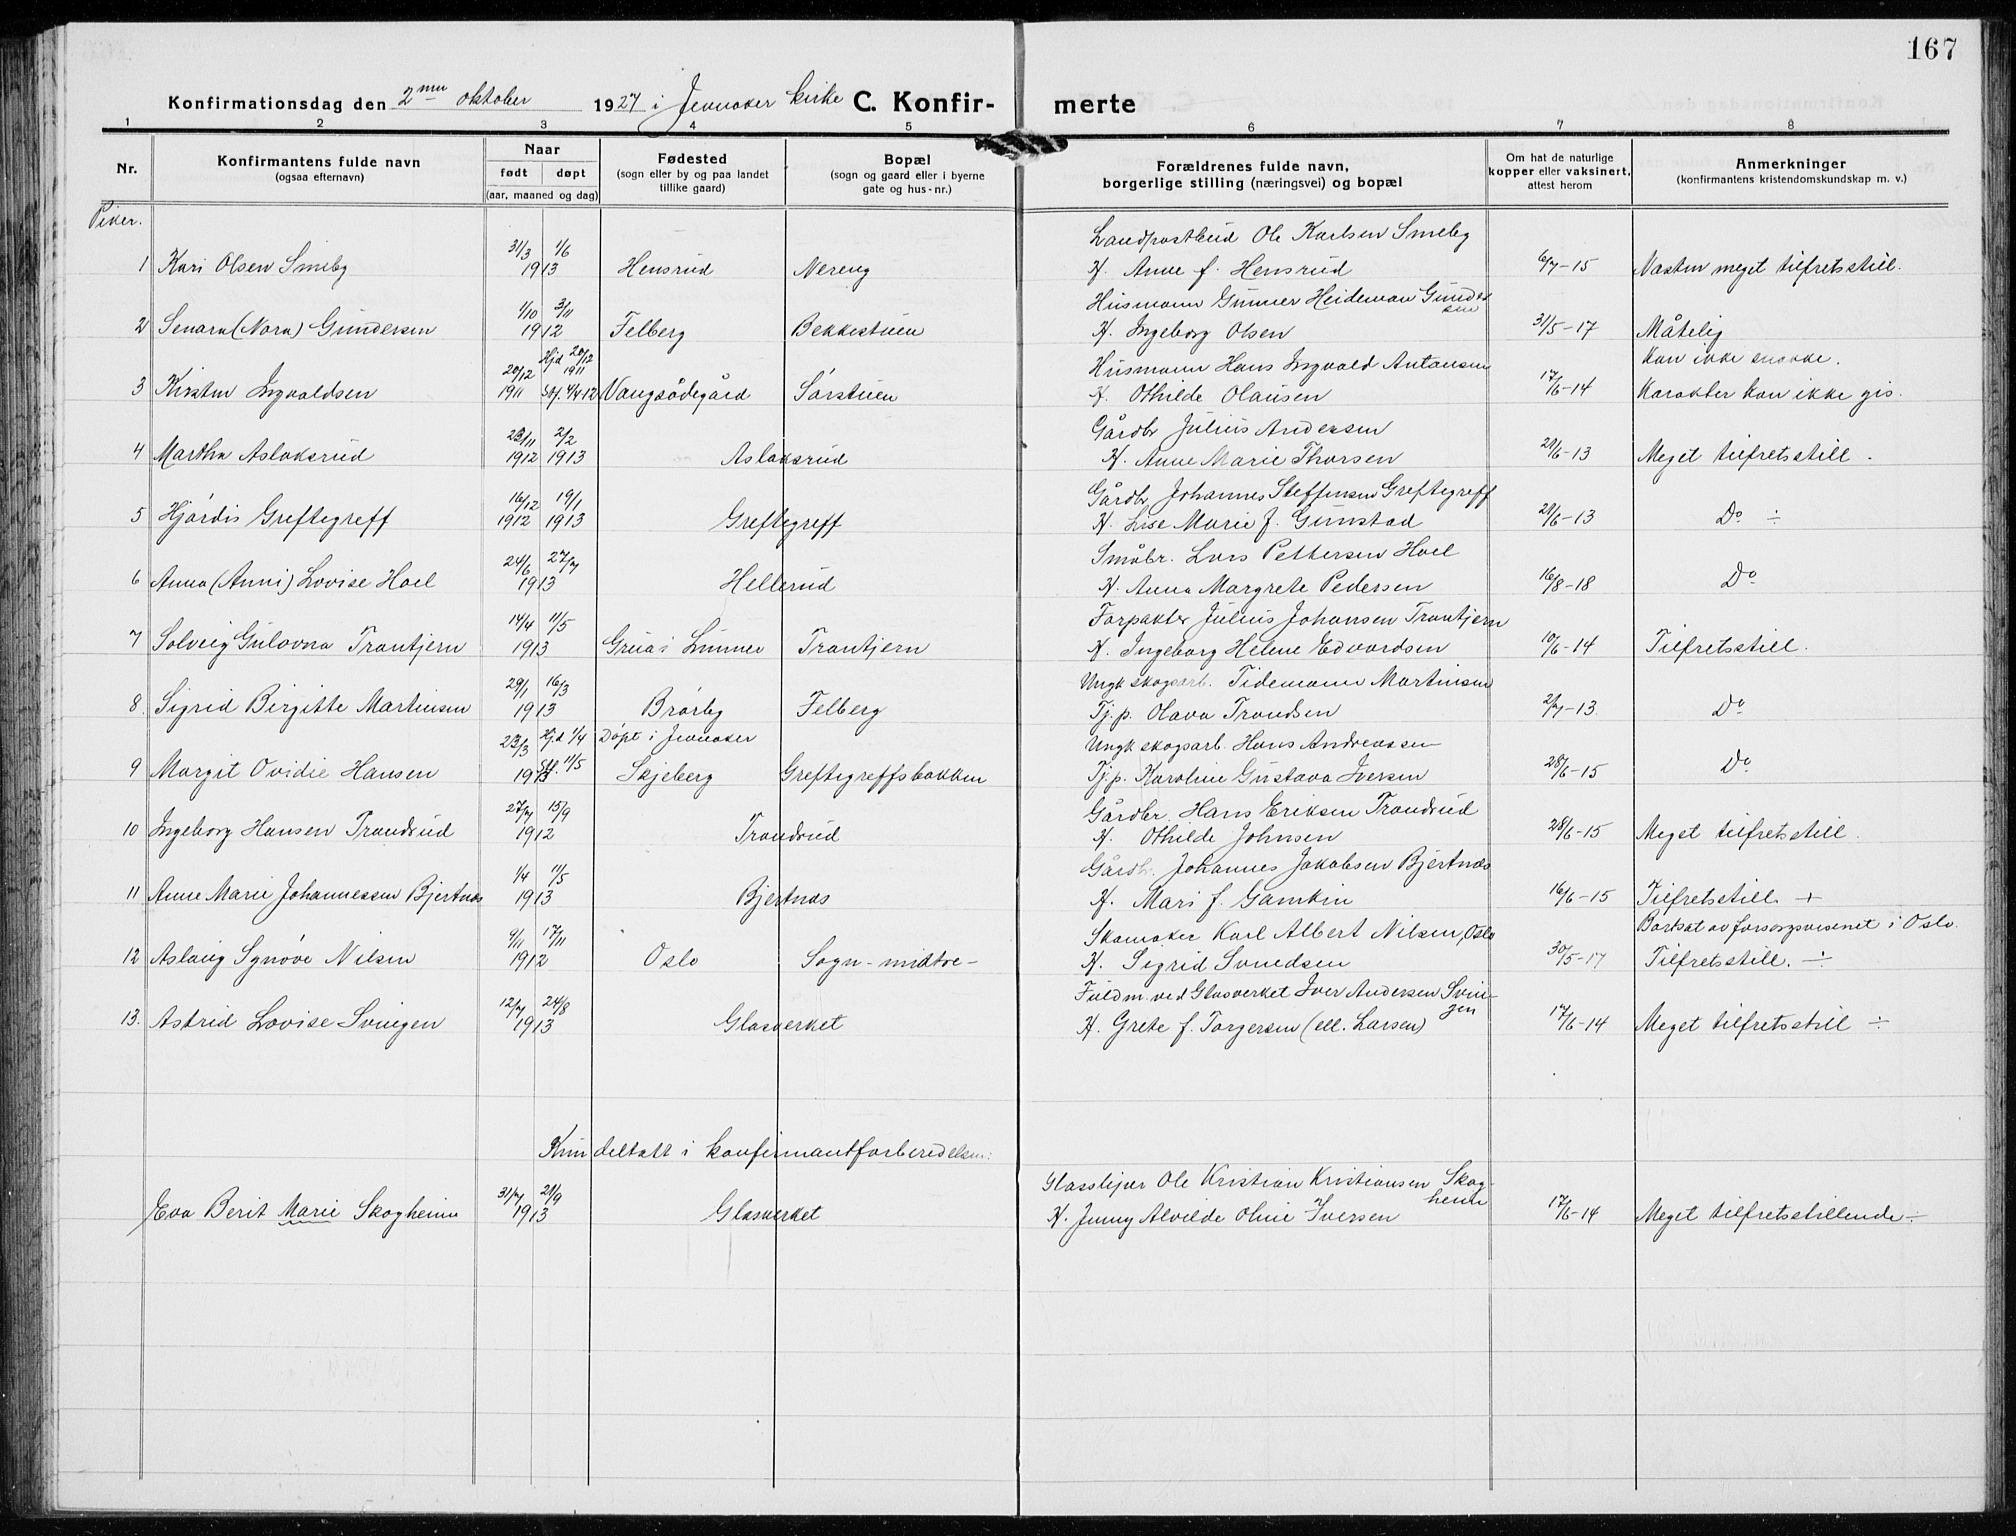 167
Konfirmationsdag den 2nen oktober 1927 i Jevnaker kirke C. Konfirmerte
1 2 3 4 5 6 7 8
Nr. Konfirmantens fulde navn (ogsaa efternavn) Naar født døpt (aar, maaned og dag) Fødested (sogn eller by og paa landet tillike gaard) Bopæl (sogn og gaard eller i byerne gate og hus-nr.) Forældrenes fulde navn, borgerlige stilling (næringsvei) og bopæl Om hat de naturlige kopper eller vaksinert, attest herom Anmerkninger (konfirmantens kristendomskundskap m. v.)
Piker.
Landpostbud Ole Karlsen Smeby
1 Kari Olsen Smeby 31/3 1/6 1913 Hensrud Nereng H. Anne f. Hensrud 6/7-15 Næsten meget tilfretsstill.
Husmann Gunner Heideman Gundersen
2 Senora (Nora) Gundersen 1/10 3/11 1912 Felberg Bekkestuen H. Ingeborg Olsen 31/5-17 Måtelig
Husmann Hans Ingvald Antonsen kan ikke snakke.
3 Kirsten Ingvaldsen 20/12 1911 Hjd 20/12 1911 Stf. 4/4 12 Vangsødegård Sørstuen H. Othilde Olausen 17/6-14 Karakter kan ikke gis.
Gårdbr Julius Andersen
4 Martha Aslaksrud 23/11 1912 2/2 1913 Aslaksrud H. Anne Marie Thorsen 21/6-13 Meget tilfretsstill.
Gårdbr Johannes Steffensen Greftegreff
5 Hjørdis Greftegreff 16/12 1912 19/1 1913 Greftegreff H. Lise Marie f. Gunstad 21/6-13 Do ÷
Småbr. Lars Pettersen Hoel
6 Anna (Anni) Lovise Hoel 24/6 27/7 1913 Hellerud H. Anna Margrete Pedersen 16/8-18 Do
Forpakter Julius Johansen Trantjern
7 Solveig Gulovna Trantjern 14/4 11/5 1913 Grua i Lunner Trantjern H. Ingeborg Helene Edvardsen 10/6-14 Tilfretsstill.
Ungk skogsarb. Tidemann Martinsen
8. Sigrid Birgitte Martinsen 29/1 16/3 1913 Brørby Felberg Tj.p. Olava Trondsen 2/7-13 Do
Døpt i Jevnaker Ungk skogsarb. Hans Andreassen
9 Margit Ovidie Hansen 23/3 Hjd 1/4 Stf. 11/5 1913 Skjeberg Greftegreffsbakken Tj.p. Karoline Gustava Iversen 28/6-15 Do
Gårdbr. Hans Eriksen Trondrud
10 Ingeborg Hansen Trondrud 27/7 15/9 1912 Trondrud H. Othilde Johnsen 28/6-15 Meget tilfretsstill.
Gårdb. Johannes Jakobsen Bjertnæs
11 Anne Marie Johannessen Bjertnæs 1/4 11/5 1913 Bjertnæs H. Mari f. Gamkin 16/6-15 Tilfretsstill. +
Skomaker Karl Albert Nilsen, Oslo Bortsat av forsorgsvesenet i Oslo.
12 Aslaug Synøve Nilsen 9/11 17/11 1912 Oslo Sogn-midtre- H. Sigrid Svendsen 30/5-17 Tilfretsstill. ÷
Fuldm. ved Glasverket Iver Andersen Svingen
13. Astrid Lovise Svingen 12/7 24/8 1913 Glasverket H. Grete f. Torgersen (ell. Larsen) 17/6-14 Meget tilfretsstill ÷
Kun deltatt i konfirmantforberedelsen:
Glassliper Ole Kristian Kristiansen Skogheim
Eva Berit Marie Skogheim 31/7 21/9 1913 Glasverket H. Jenny Alvilde Oline Iversen 17/6-14 Meget tilfretsstillende ÷